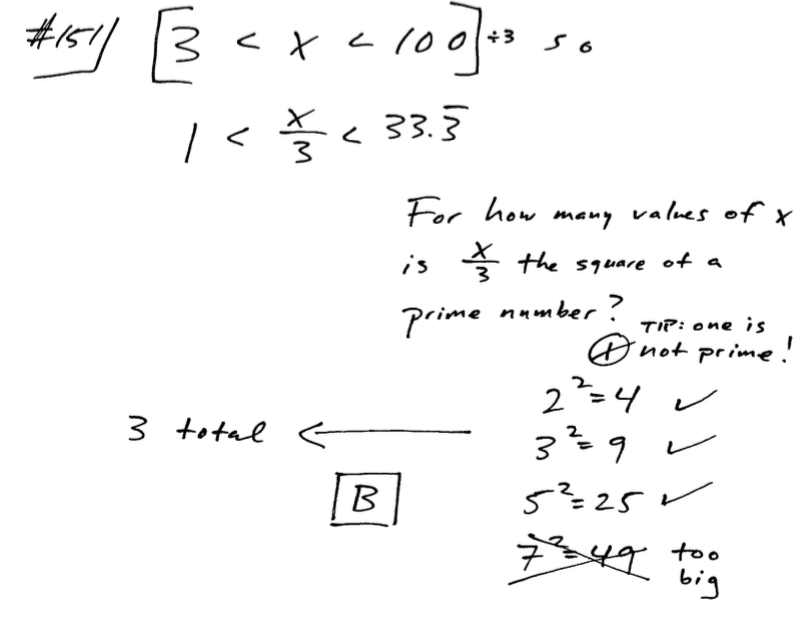 #151 [3 < x < 100]÷3 so
1 < x/3 < 33.3̅
For how many values of x
is x/3 the square of a
prime number?
TIP: one is
not prime!
2²=4 ✓
3²=9 ✓
3 total ←
5²=25 ✓
B
7²=49 too
big